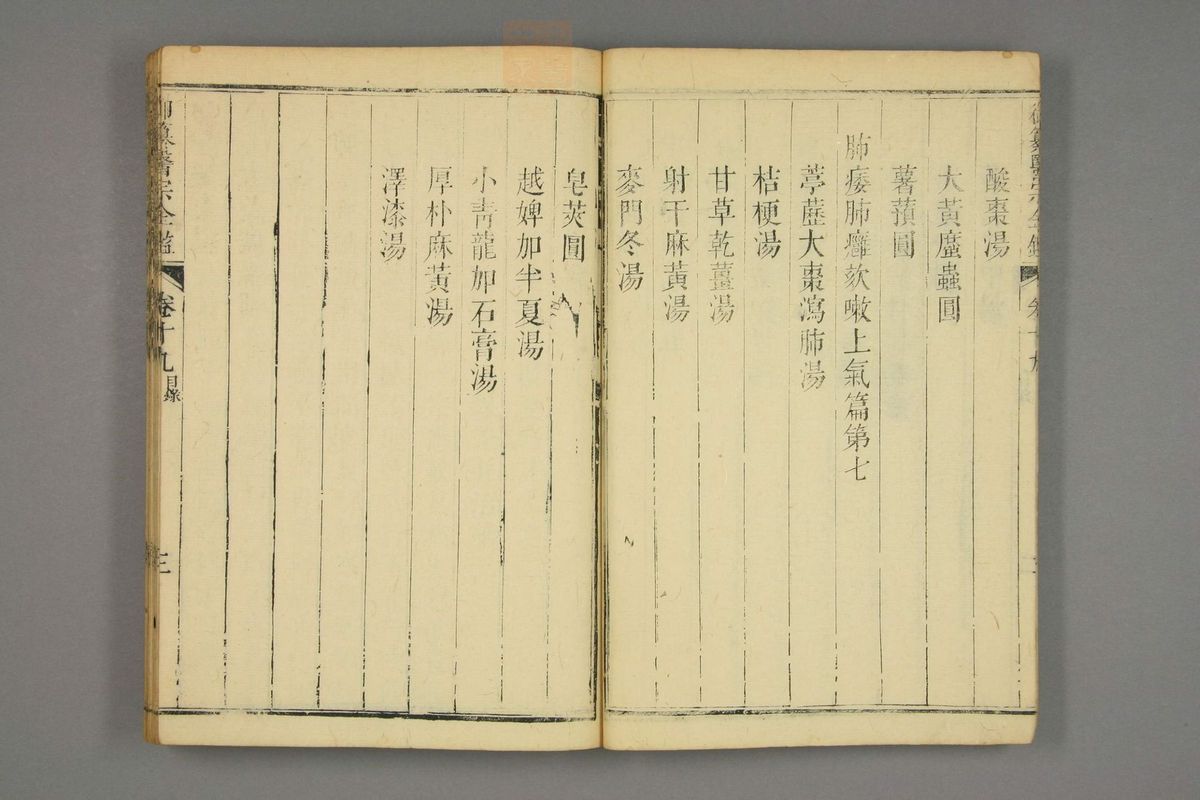 酸棗湯
大黃䗪蟲圓
薯蕷圓
肺痿肺癰欬嗽上氣篇第七
葶藶大棗瀉肺湯
桔梗湯
甘草乾薑湯
射干麻黃湯
麥門冬湯
皂莢圓
越婢加半夏湯
小青龍加石膏湯
厚朴麻黃湯
澤漆湯
御纂醫宗全鑑
卷十九
目錄